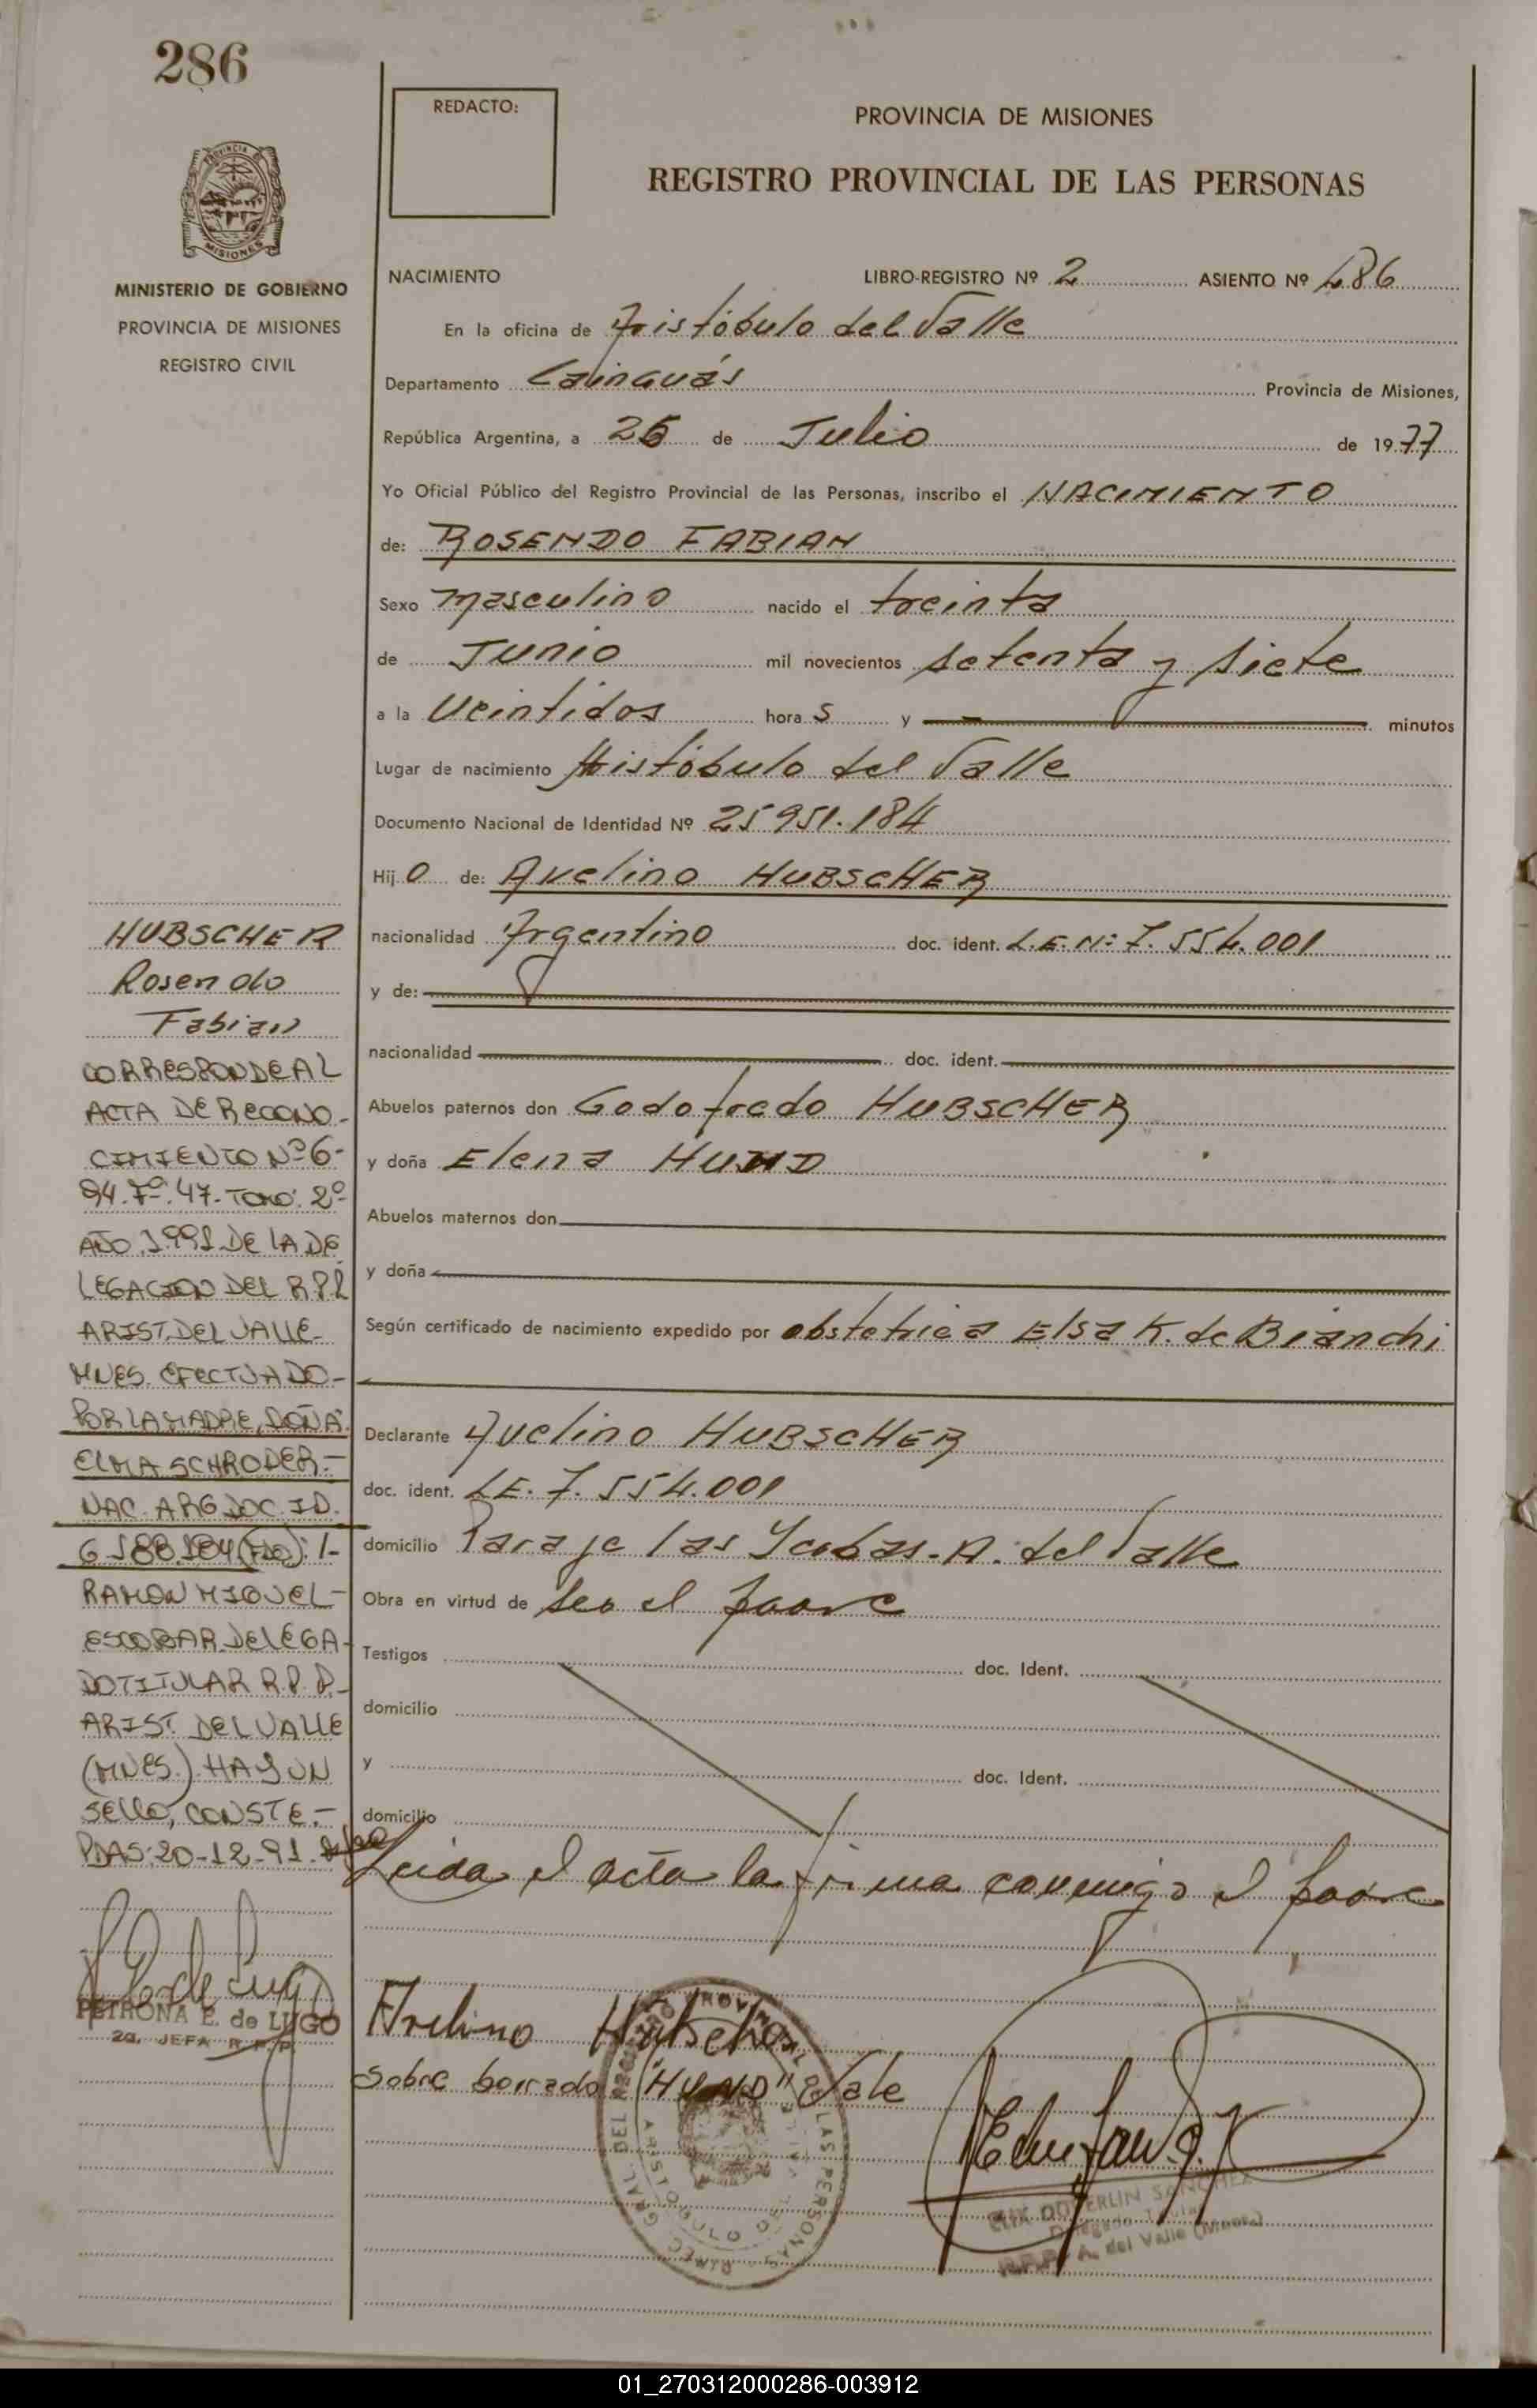 286
REDACTO:
PROVINCIA DE MISIONES
REGISTRO PROVINCIAL DE LAS PERSONAS
PROVINCIA DE
MISIONES
MINISTERIO DE GOBIERNO
PROVINCIA DE MISIONES
REGISTRO CIVIL
NACIMIENTO LIBRO-REGISTRO Nº 2 ASIENTO Nº 486
En la oficina de Aristóbulo del Valle
Departamento Cainguás Provincia de Misiones,
República Argentina, a 26 de Julio de 1977
Yo Oficial Público del Registro Provincial de las Personas, inscribo el NACIMIENTO
de: ROSENDO FABIAN
Sexo masculino nacido el treinta
de Junio mil novecientos setenta y siete
a la veintidos hora s y minutos
Lugar de nacimiento Aristóbulo del Valle
Documento Nacional de Identidad Nº 25951.184
Hij o de: Avelino HUBSCHER
nacionalidad Argentino doc. ident. L.E.Nº 7.554.001
y de:
nacionalidad doc. ident.
Abuelos paternos don Godofredo HUBSCHER
y doña Elena HUND
Abuelos maternos don
y doña
Según certificado de nacimiento expedido por obstetrica Elsa K. de Bianchi
Declarante Avelino HUBSCHER
doc. ident. LE. 7.554.001
domicilio Paraje las Yerbas-A. del Valle
Obra en virtud de ser el padre
Testigos doc. Ident.
domicilio
y doc. Ident.
domicilio
Leida el acta la firma conmigo el padre
Avelino Hubscher
Sobre borrado "HUND" Vale
DELFIN SANCHEZ
Delegado Titular
R.P.P. A. del Valle (Mnes.)
HUBSCHER
Rosendo
Fabian
CORRESPONDE AL
ACTA DE RECONO-
CIMIENTO Nº 6-
94.Fº.47.TOMO: 2º
AÑO 1.991 DE LA DE
LEGACION DEL R.P.P
ARIST. DEL VALLE-
MNES. EFECTUADO-
POR LA MADRE, DOÑA
ELMA SCHRODER.-
NAC. ARG DOC. ID.
RAMON MIGUEL-
ESCOBAR DELEGA-
DO TITULAR R.P.P.-
ARIST. DEL VALLE
(MNES.) HAY UN
SELLO, CONSTE.-
PDAS: 20-12-91.
PETRONA E. de LUGO
2a. JEFA R.P.P.
01_270312000286-003912